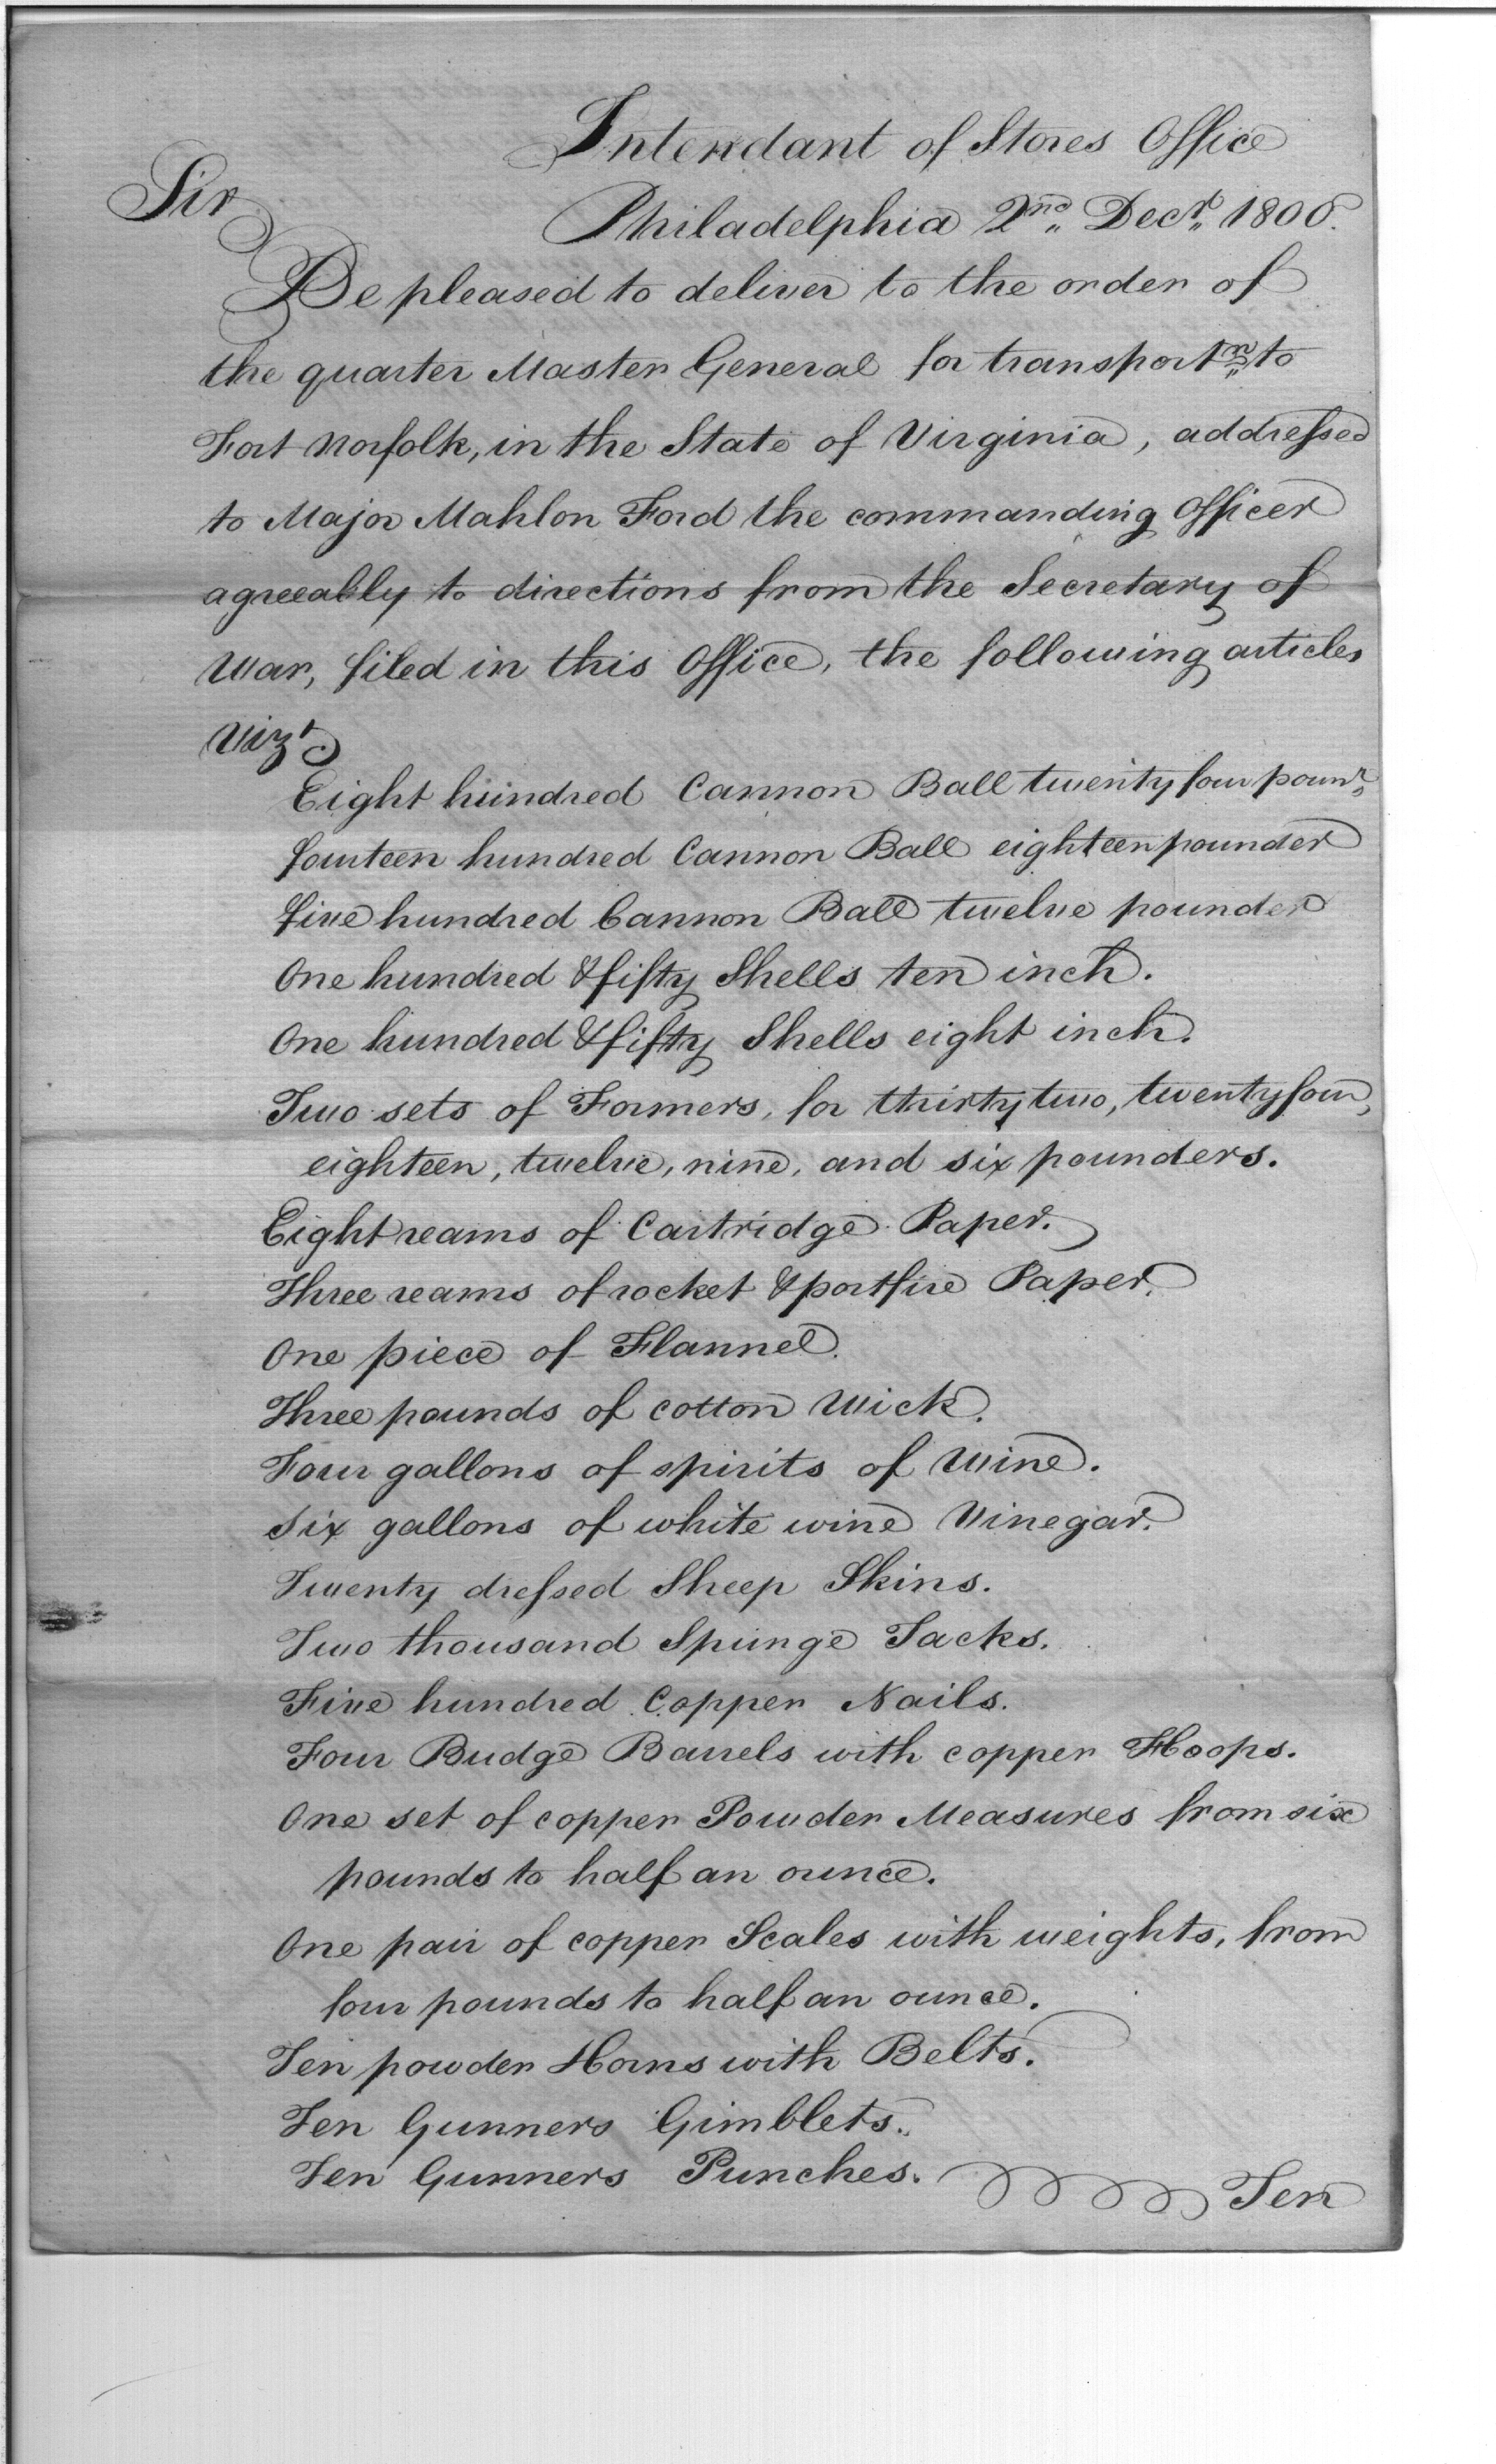 Intendant of Stores Office
Sir
Philadelphia 2nd Decr 1800.
Be pleased to deliver to the order of
the quarter Master General for transportn to
Fort Norfolk, in the State of Virginia, addressed
to Major Mahlon Ford the commanding Officer
agreeably to directions from the Secretary of
War, filed in this Office, the following articles
Vizt
Eight hundred Cannon Ball twenty four pounr
fourteen hundred Cannon Ball eighteen pounder
five hundred Cannon Ball twelve pounder
One hundred & fifty Shells ten inch.
One hundred & fifty Shells eight inch.
Two sets of Formers, for thirty two, twenty four,
eighteen, twelve, nine, and six pounders.
Eight reams of Cartridge Paper.
Three reams of rocket & portfire Paper.
One piece of Flannel.
Three pounds of cotton Wick.
Four gallons of spirits of Wine.
Six gallons of white wine Vinegar.
Twenty dressed Sheep Skins.
Two thousand Spunge Tacks.
Five hundred Copper Nails.
Four Budge Barrels with copper Hoops.
One set of copper Powder Measures from six
pounds to half an ounce.
One pair of copper Scales with weights, from
four pounds to half an ounce.
Ten powder Horns with Belts.
Ten Gunners Gimblets.
Ten Gunners Punches.
Ten